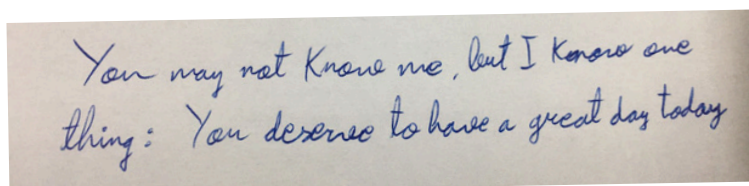 You may not know me, but I know one
thing: You deserve to have a great day today